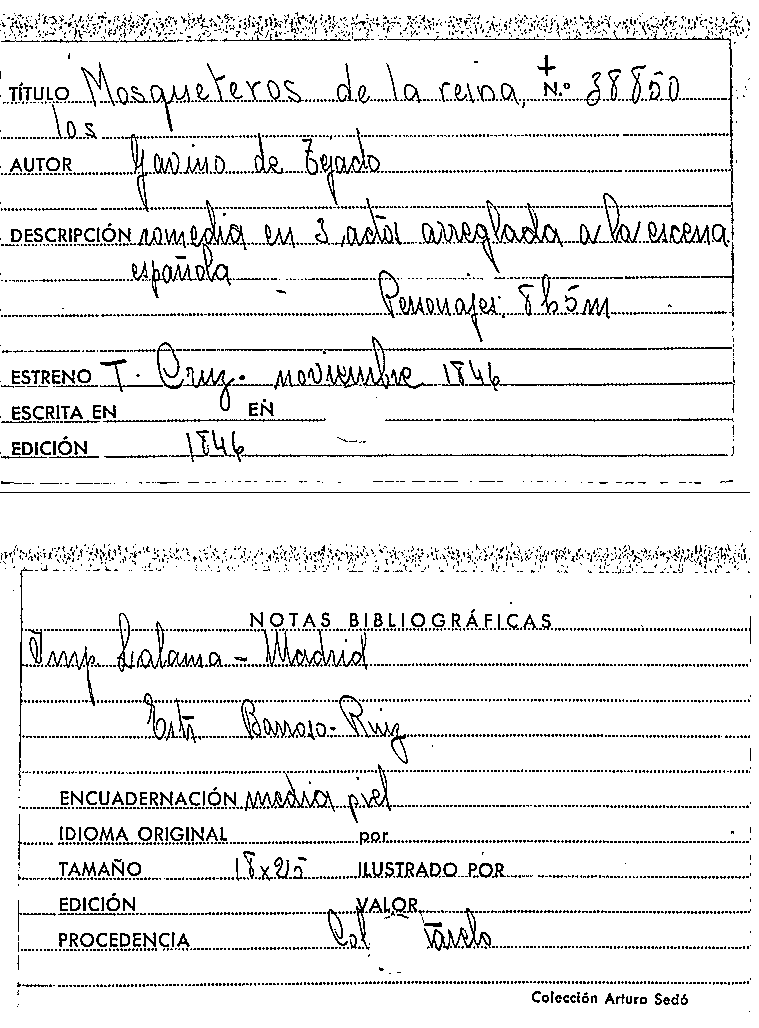 TÍTULO Mosqueteros de la reina, + N.º 38850
los
AUTOR Gavino de Tejado
DESCRIPCIÓN comedia en 3 actos arreglada a la escena
española
Personajes: 8 h 5 m
ESTRENO T. Cruz. noviembre 1846
ESCRITA EN EN
EDICIÓN 1846
NOTAS BIBLIOGRÁFICAS
Imp Lalama - Madrid
Estr. Barroso-Ruiz
ENCUADERNACIÓN media piel
IDIOMA ORIGINAL por
TAMAÑO 18x215 ILUSTRADO POR
EDICIÓN VALOR
PROCEDENCIA Col
Colección Arturo Sedó